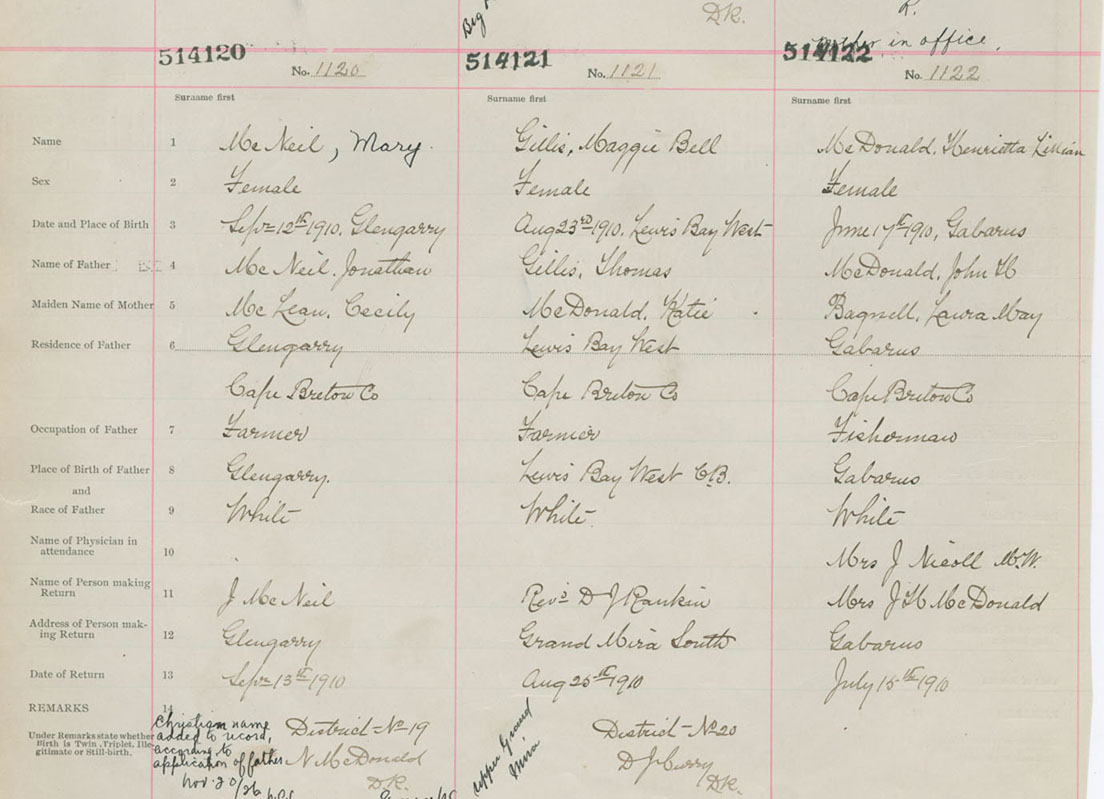 Big
D.R.
R.
in office.
514120 No. 1120
514121 No. 1121
514122 No. 1122
Surname first Surname first Surname first
Name 1 McNeil, Mary. Gillis, Maggie Bell McDonald, Henrietta Lillian
Sex 2 Female Female Female
Date and Place of Birth 3 Sept 12th 1910, Glengarry Aug 23rd 1910, Lewis Bay West June 17th 1910, Gabarus
Name of Father 4 McNeil, Jonathan Gillis, Thomas McDonald, John H
Maiden Name of Mother 5 McLean, Cecily McDonald, Katie Bagnell, Laura May
Residence of Father 6 Glengarry Lewis Bay West Gabarus
Cape Breton Co Cape Breton Co Cape Breton Co
Occupation of Father 7 Farmer Farmer Fisherman
Place of Birth of Father 8 Glengarry. Lewis Bay West C.B. Gabarus
and
Race of Father 9 White White White
Name of Physician in
attendance 10 Mrs J Nicoll M.W.
Name of Person making
Return 11 J McNeil Revd D J Rankin Mrs J H McDonald
Address of Person mak-
ing Return 12 Glengarry Grand Mira South Gabarus
Date of Return 13 Sept 13th 1910 Aug 25th 1910 July 15th 1910
REMARKS 14
Under Remarks state whether
Birth is Twin, Triplet, Ille-
gitimate or Still-birth.
Christian name
added to record,
according to
application of father
Nov. 20/26
District No 19
N McDonald
D.R.
Upper Grand
Mira
District No 20
D J Curry
D.R.